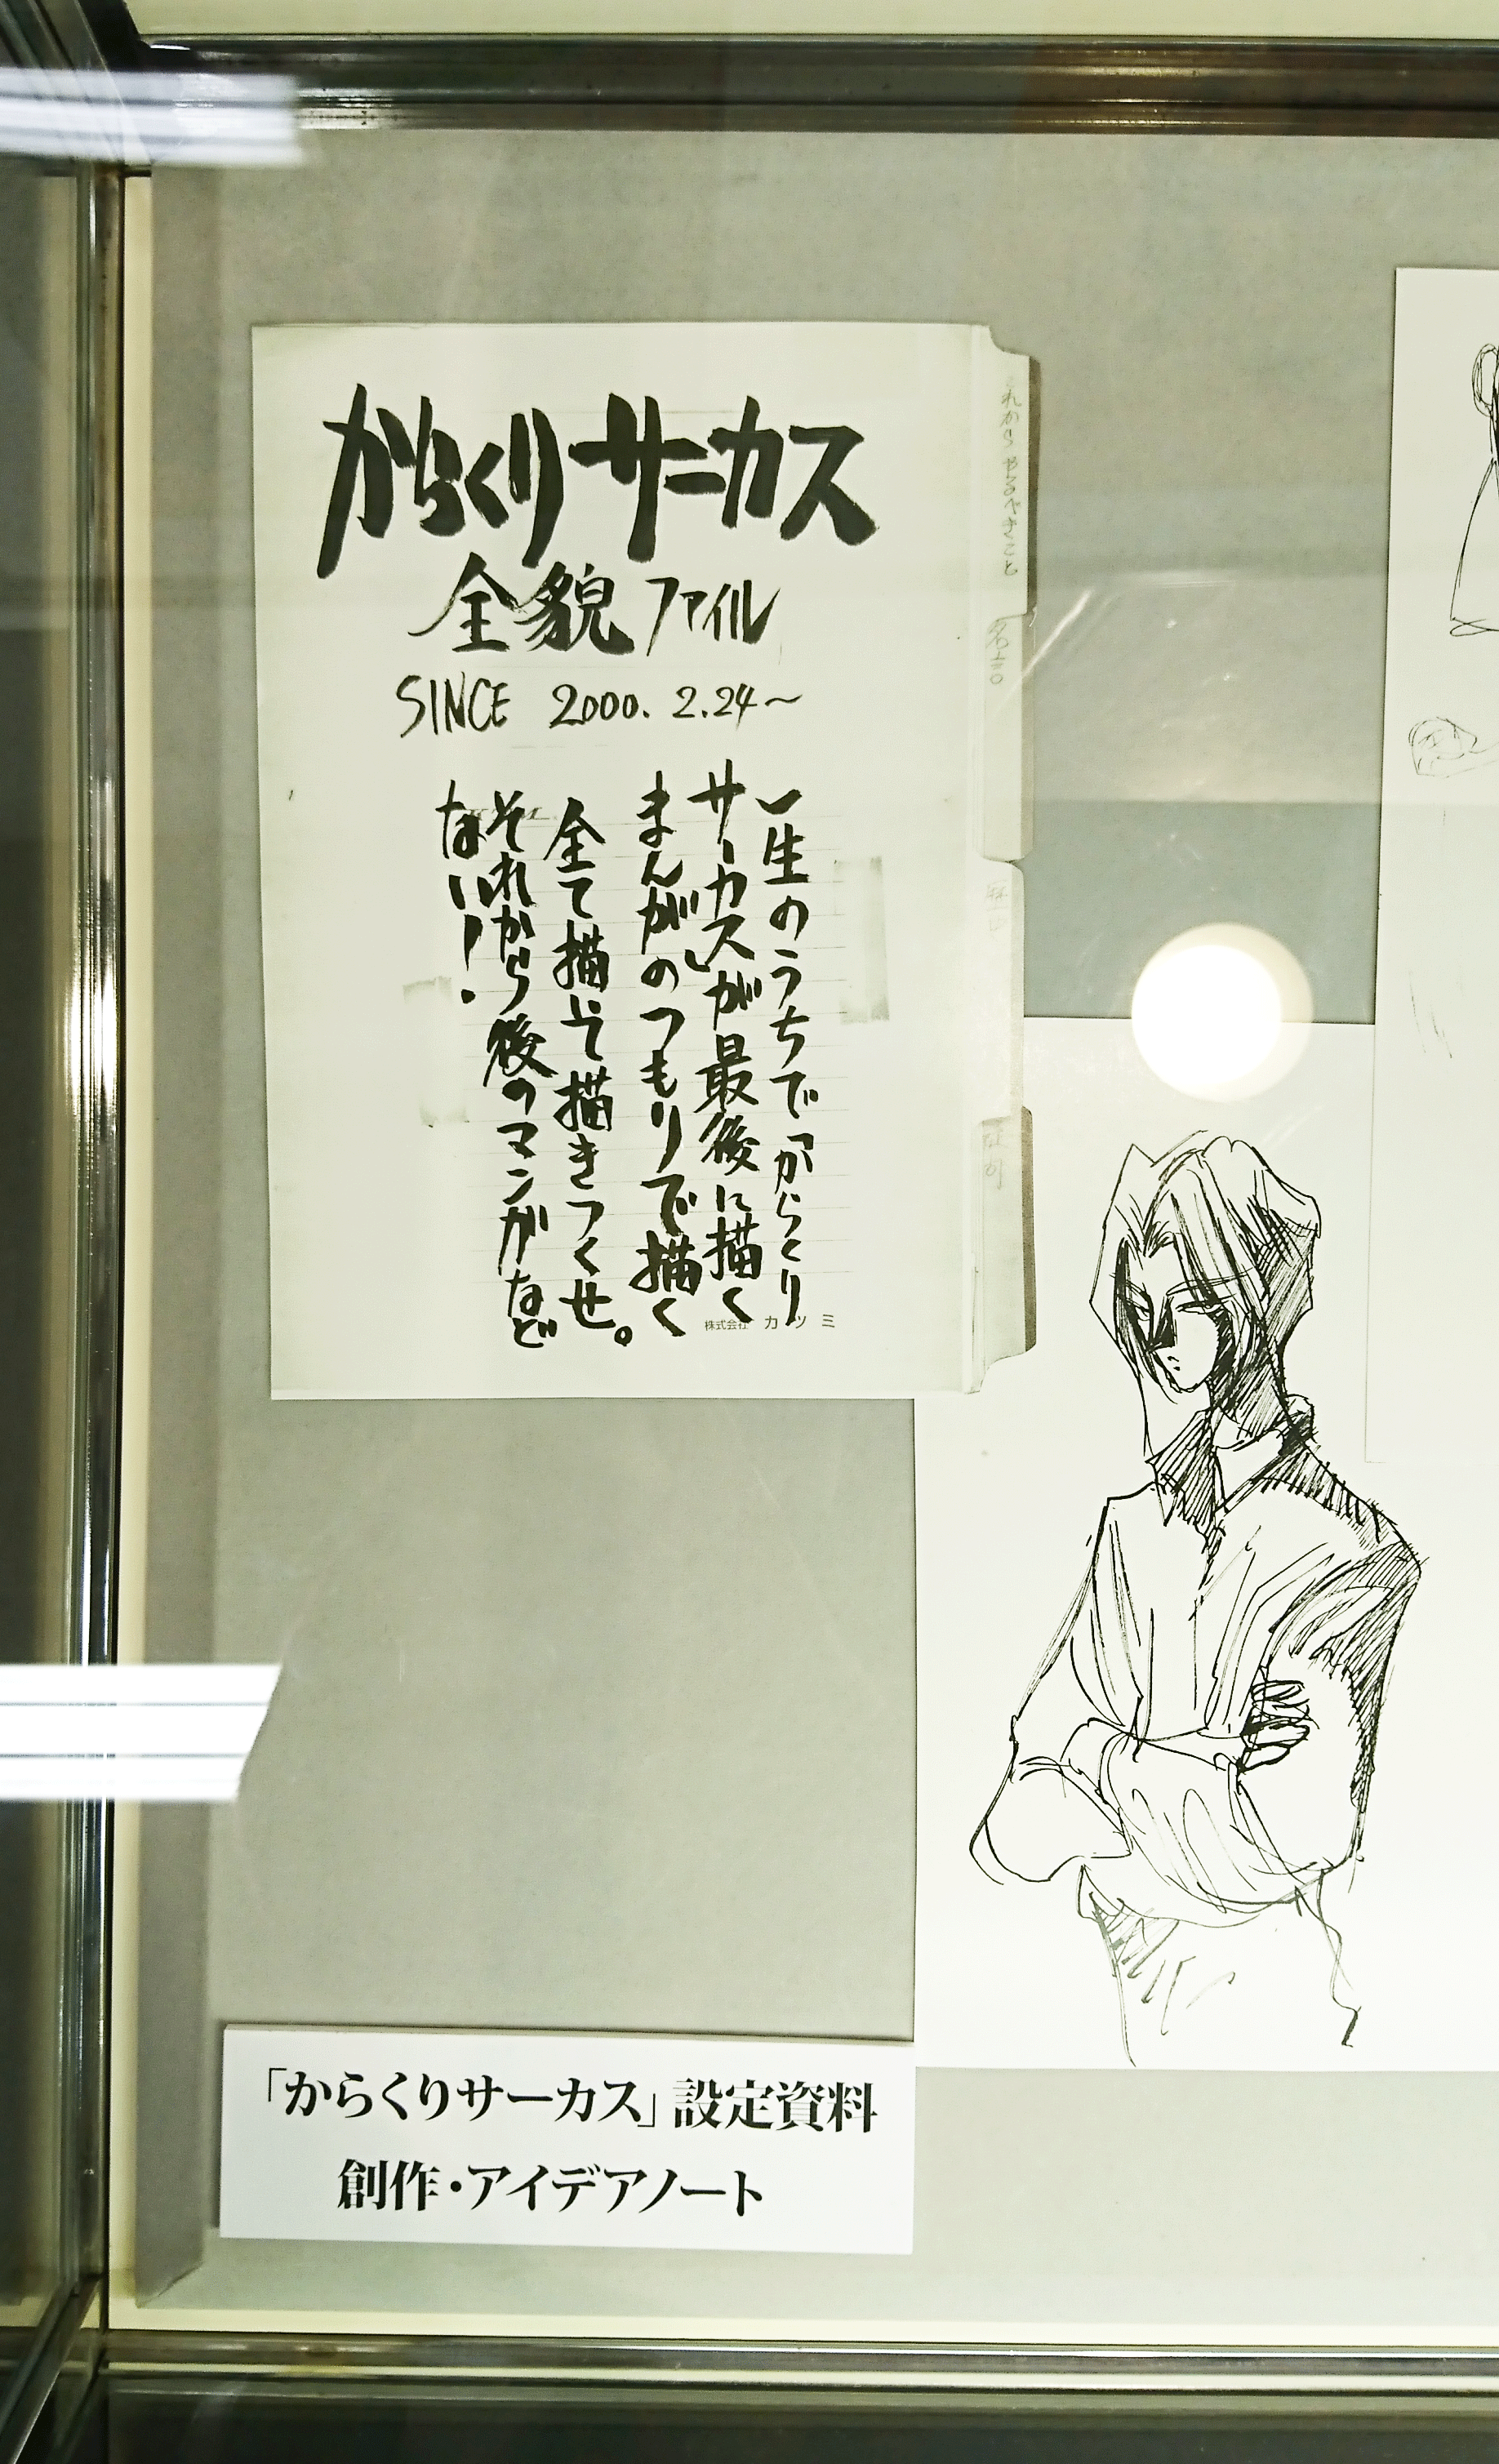 からくりサーカス
全貌ファイル
SINCE 2000. 2.24〜
一生のうちで「からくり
サーカス」が最後に描く
まんがのつもりで描く
全て描いて描きつくせ。
それから後のマンガなど
ない!
株式会社 カツミ
これからやるべきこと
名言
「からくりサーカス」設定資料
創作・アイデアノート